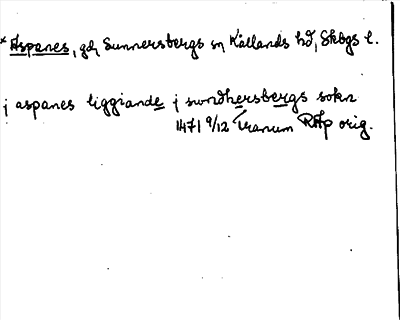 * Aspanes, gd, Sunnersbergs sn, Kållands hd, Skbgs l.
j aspanes liggiande j swndhersbergs sokn
1471 9/12 Tranum RAp orig.